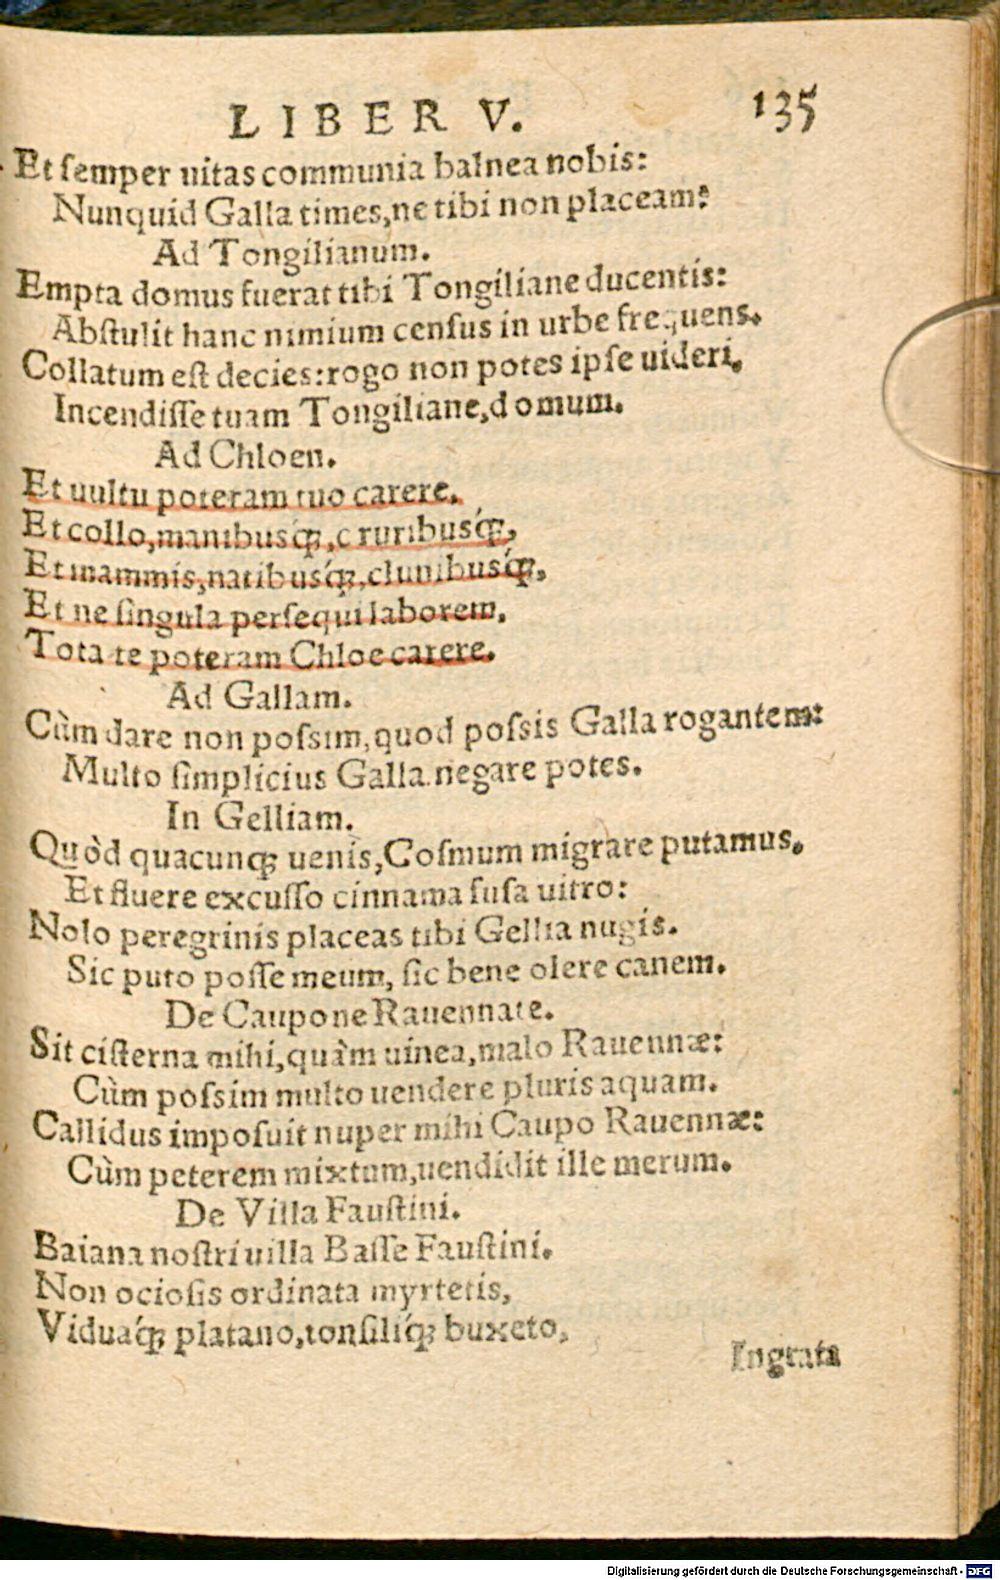 LIBER V. 135
Et semper uitas communia balnea nobis:
Nunquid Galla times, ne tibi non placeam?
Ad Tongilianum.
Empta domus fuerat tibi Tongiliane ducentis:
Abstulit hanc nimium census in urbe frequens.
Collatum est decies: rogo non potes ipse uideri,
Incendisse tuam Tongiliane, domum.
Ad Chloen.
Et uultu poteram tuo carere.
Et collo, manibusq́;, cruribusq́;,
Et mammis, natibusq́;, clunibusq́;,
Et ne singula persequi laborem,
Tota te poteram Chloe carere.
Ad Gallam.
Cùm dare non possim, quod possis Galla rogantem:
Multo simplicius Galla negare potes.
In Gelliam.
Quòd quacunq; uenis, Cosmum migrare putamus.
Et fluere excusso cinnama fusa uitro:
Nolo peregrinis placeas tibi Gellia nugis.
Sic puto posse meum, sic bene olere canem.
De Caupone Rauennate.
Sit cisterna mihi, quàm uinea, malo Rauennæ:
Cùm possim multo uendere pluris aquam.
Callidus imposuit nuper mihi Caupo Rauennæ:
Cùm peterem mixtum, uendidit ille merum.
De Villa Faustini.
Baiana nostri uilla Basse Faustini.
Non ociosis ordinata myrtetis,
Viduaq́; platano, tonsiliq́; buxeto,
Ingrata
Digitalisierung gefördert durch die Deutsche Forschungsgemeinschaft - DFG